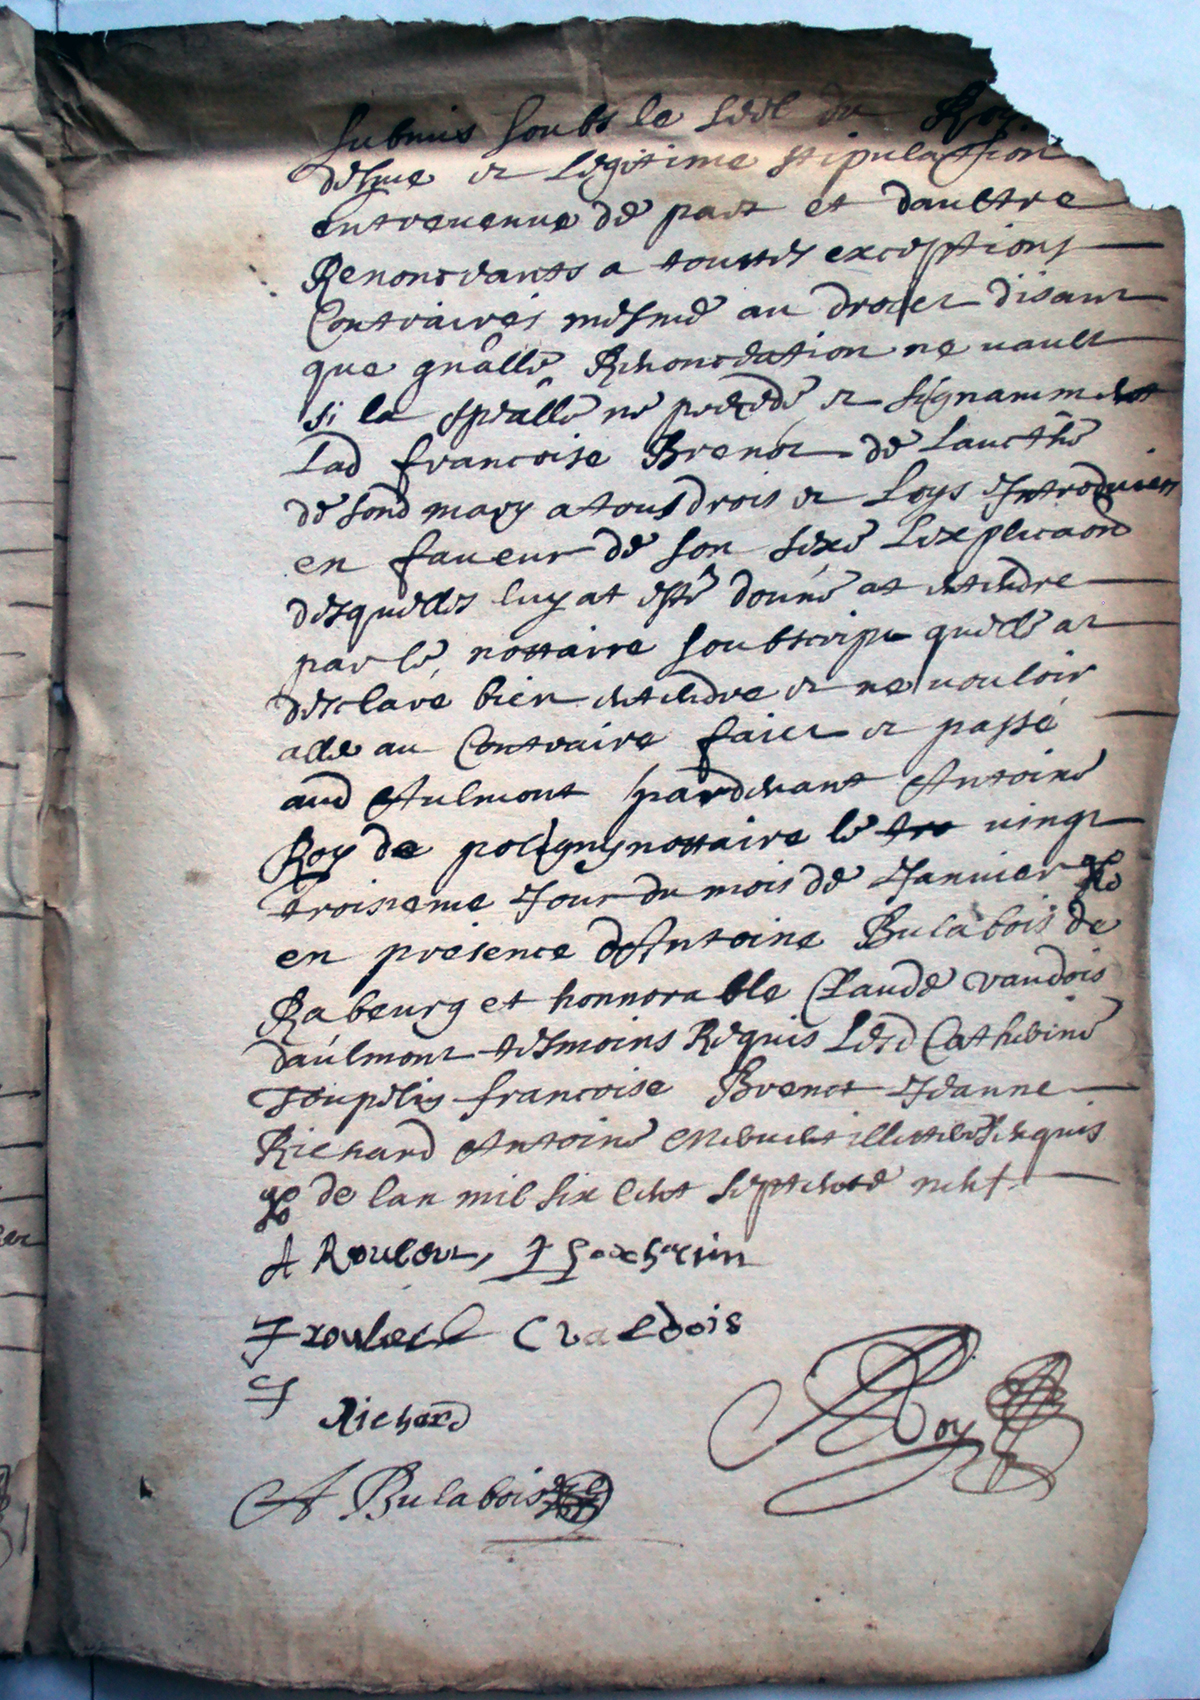 submis soubs le seel du Roy
desme et legitime stipulation
entrevenue de part et daultre
Renonceants a touttes exceptions
Contraires mesme au droict disant
que gnâlle Renonceation ne vault
si la speâlle ne precede et signamment
Lad francoise Brenot de Laucthé
de sond mary a tous drois et Loys Introduictz
en faveur de son sexe Lexplicaõn
desquelles luy at esté donné at entendre
par le nottaire soubscript quelle at
desclaré bien entendre et ne vouloir
alle au Contraire faict et passé
aud Aulmont pardevant Antoine
Roy de poligny nottaire le tre vingt
troisieme Jour du mois de Janvier
en presence dAntoine Bulabois de
Rabeurg et honnorable Claude vaudois
daulmont tesmoins Requis Lesd Catherine
francoise Brenot Jeanne
Richard Antoine illetterez enquis
de lan mil six cent septente neuf
A Roulet,
J roulet C Valdois
J
Richard
Roy
A Bulabois